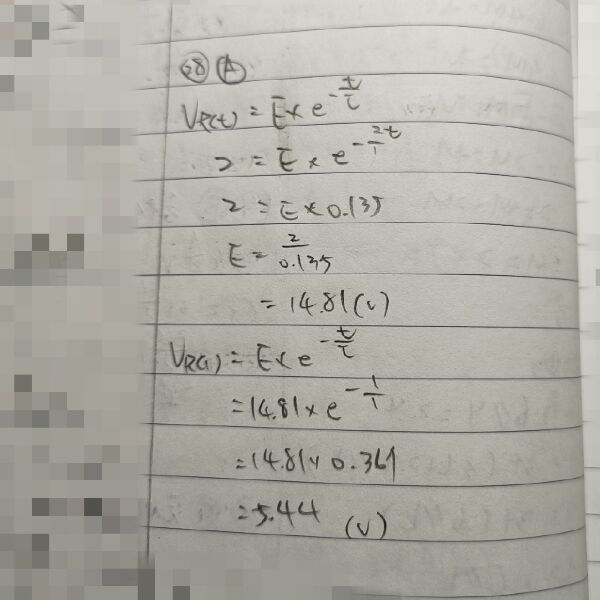 68 A
VR(t) = E × e^{-t/τ}
2 = E × e^{-2t/1}
2 = E × 0.135
E = 2/0.135
= 14.81 (V)
VR(1) = E × e^{-t/τ}
= 14.81 × e^{-1/1}
= 14.81 × 0.367
= 5.44 (V)